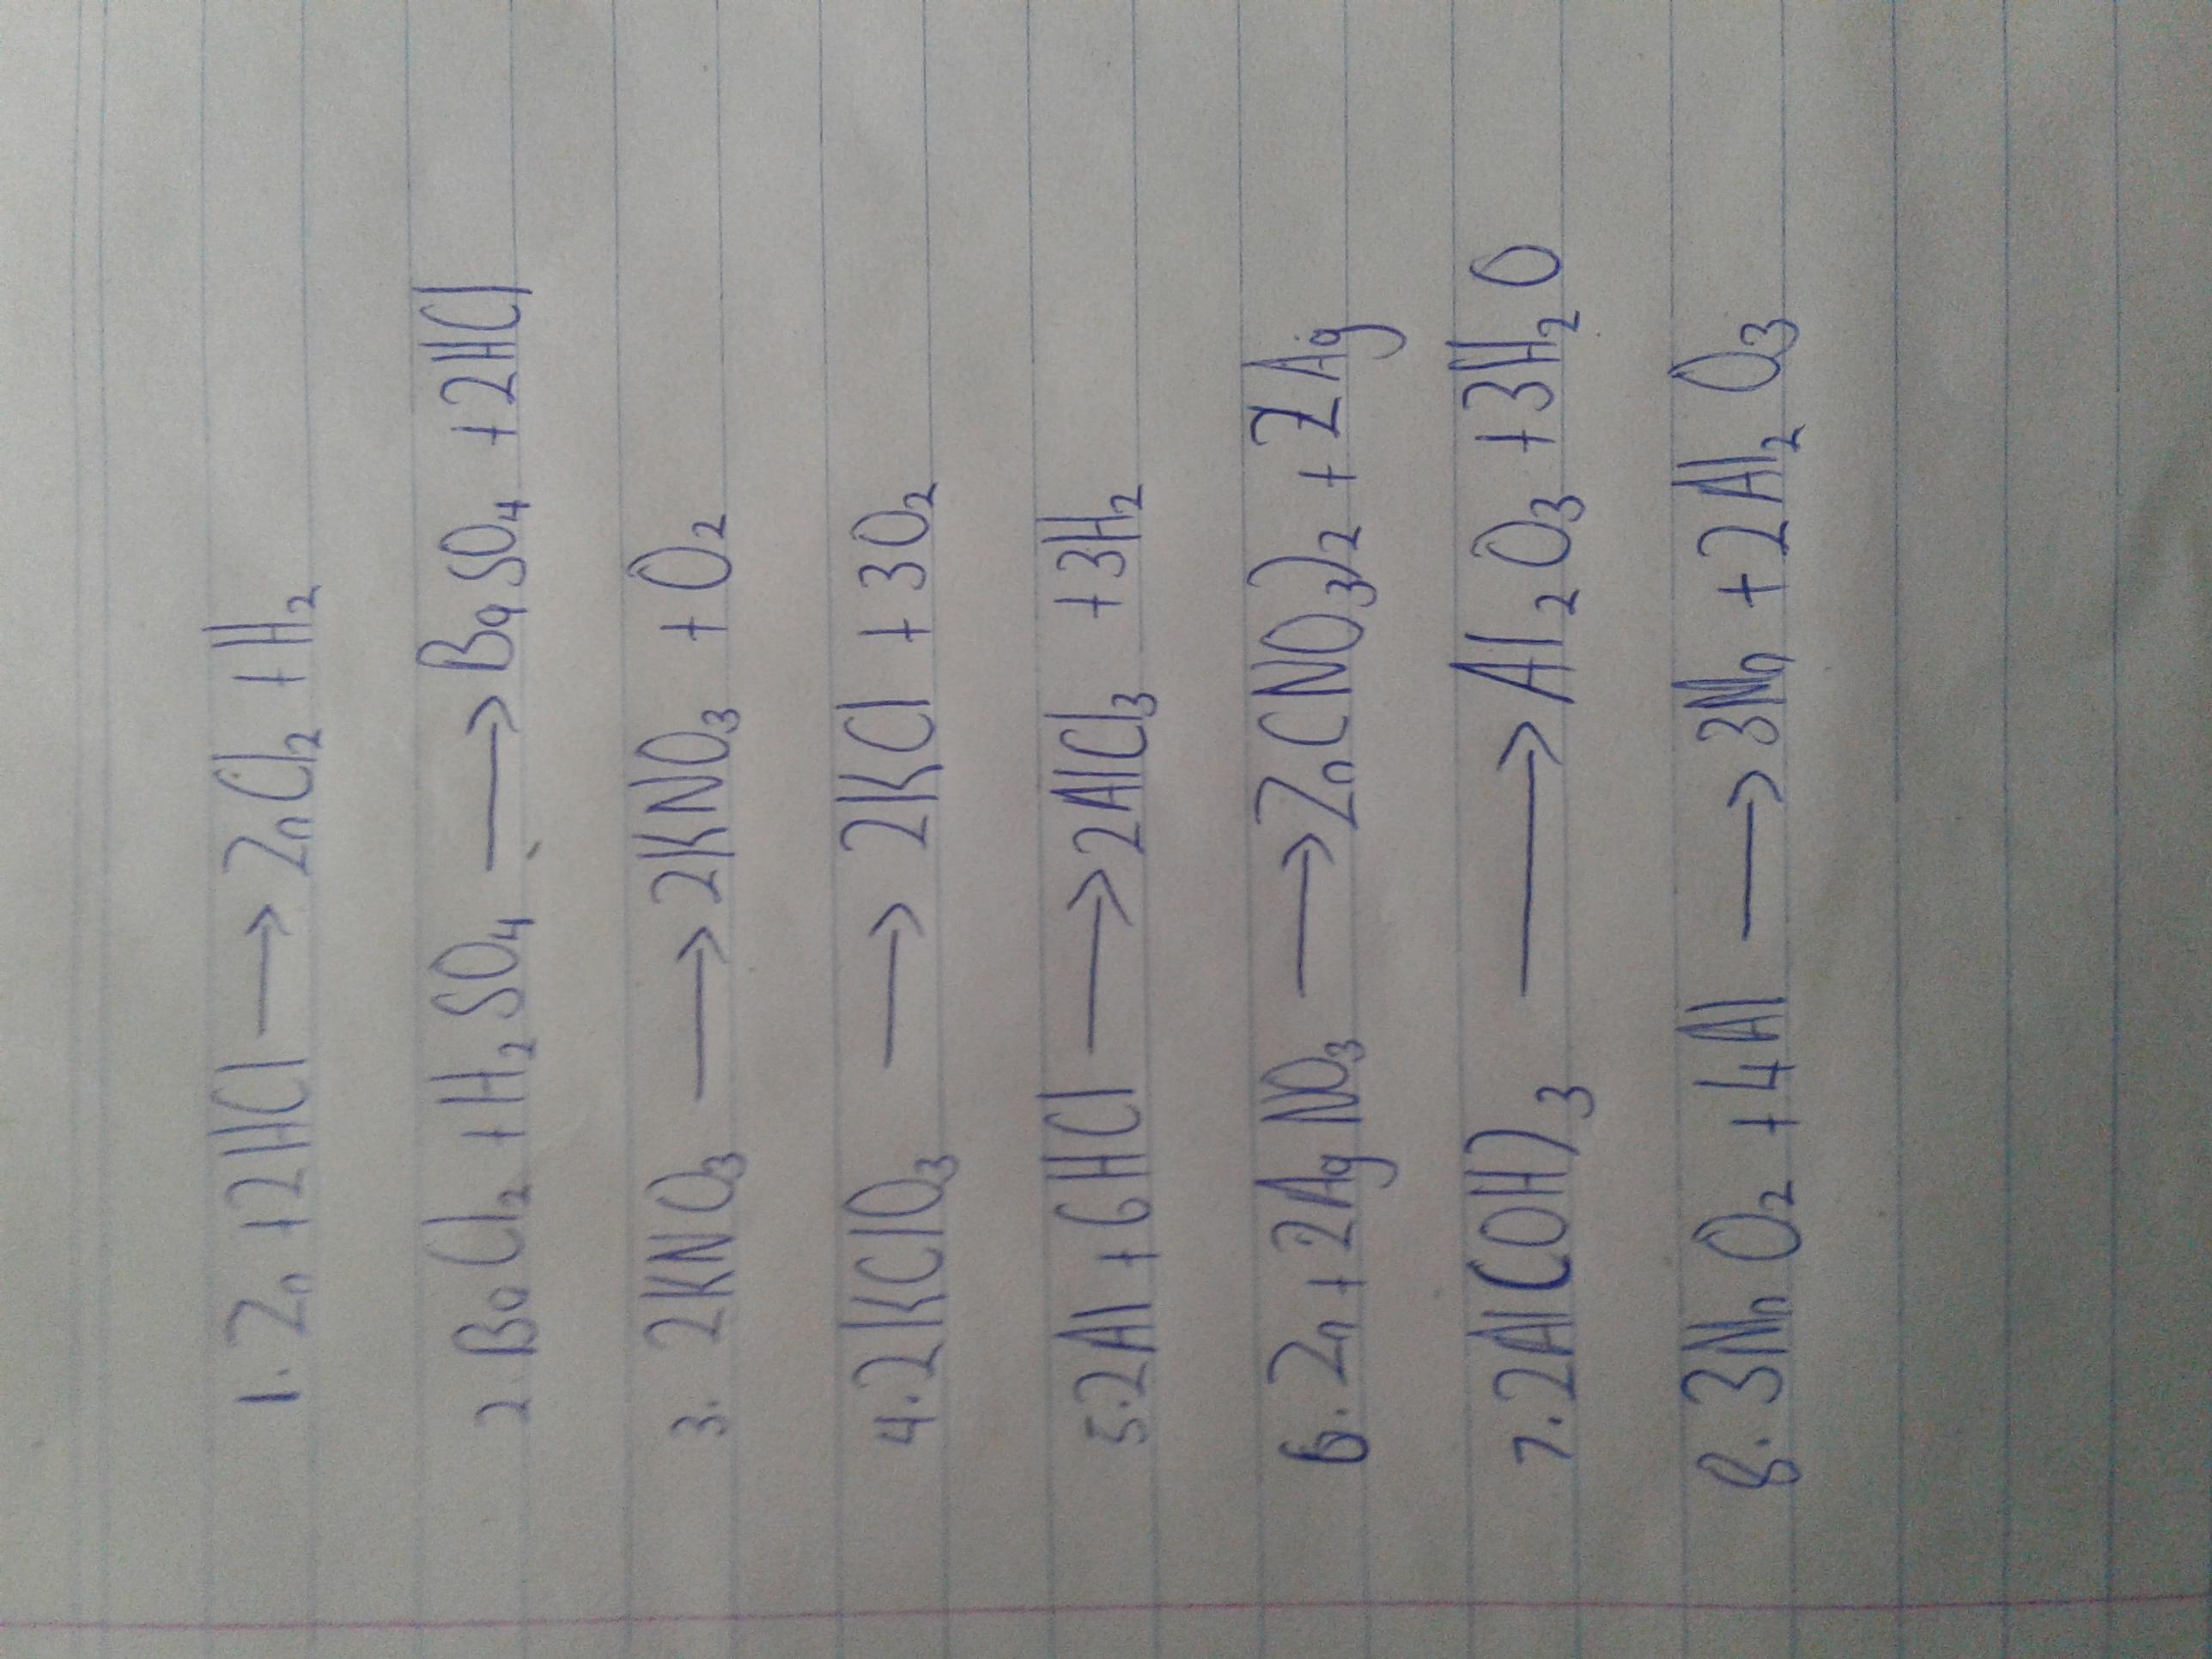 1. Zn + 2HCl → ZnCl₂ + H₂
2. BaCl₂ + H₂SO₄ → BaSO₄ + 2HCl
3. 2KNO₃ → 2KNO₃ + O₂
4. 2KClO₃ → 2KCl + 3O₂
5. 2Al + 6HCl → 2AlCl₃ + 3H₂
6. Zn + 2AgNO₃ → Zn(NO₃)₂ + 2Ag
7. 2Al(OH)₃ → Al₂O₃ + 3H₂O
8. 3MnO₂ + 4Al → 3Mn + 2Al₂O₃